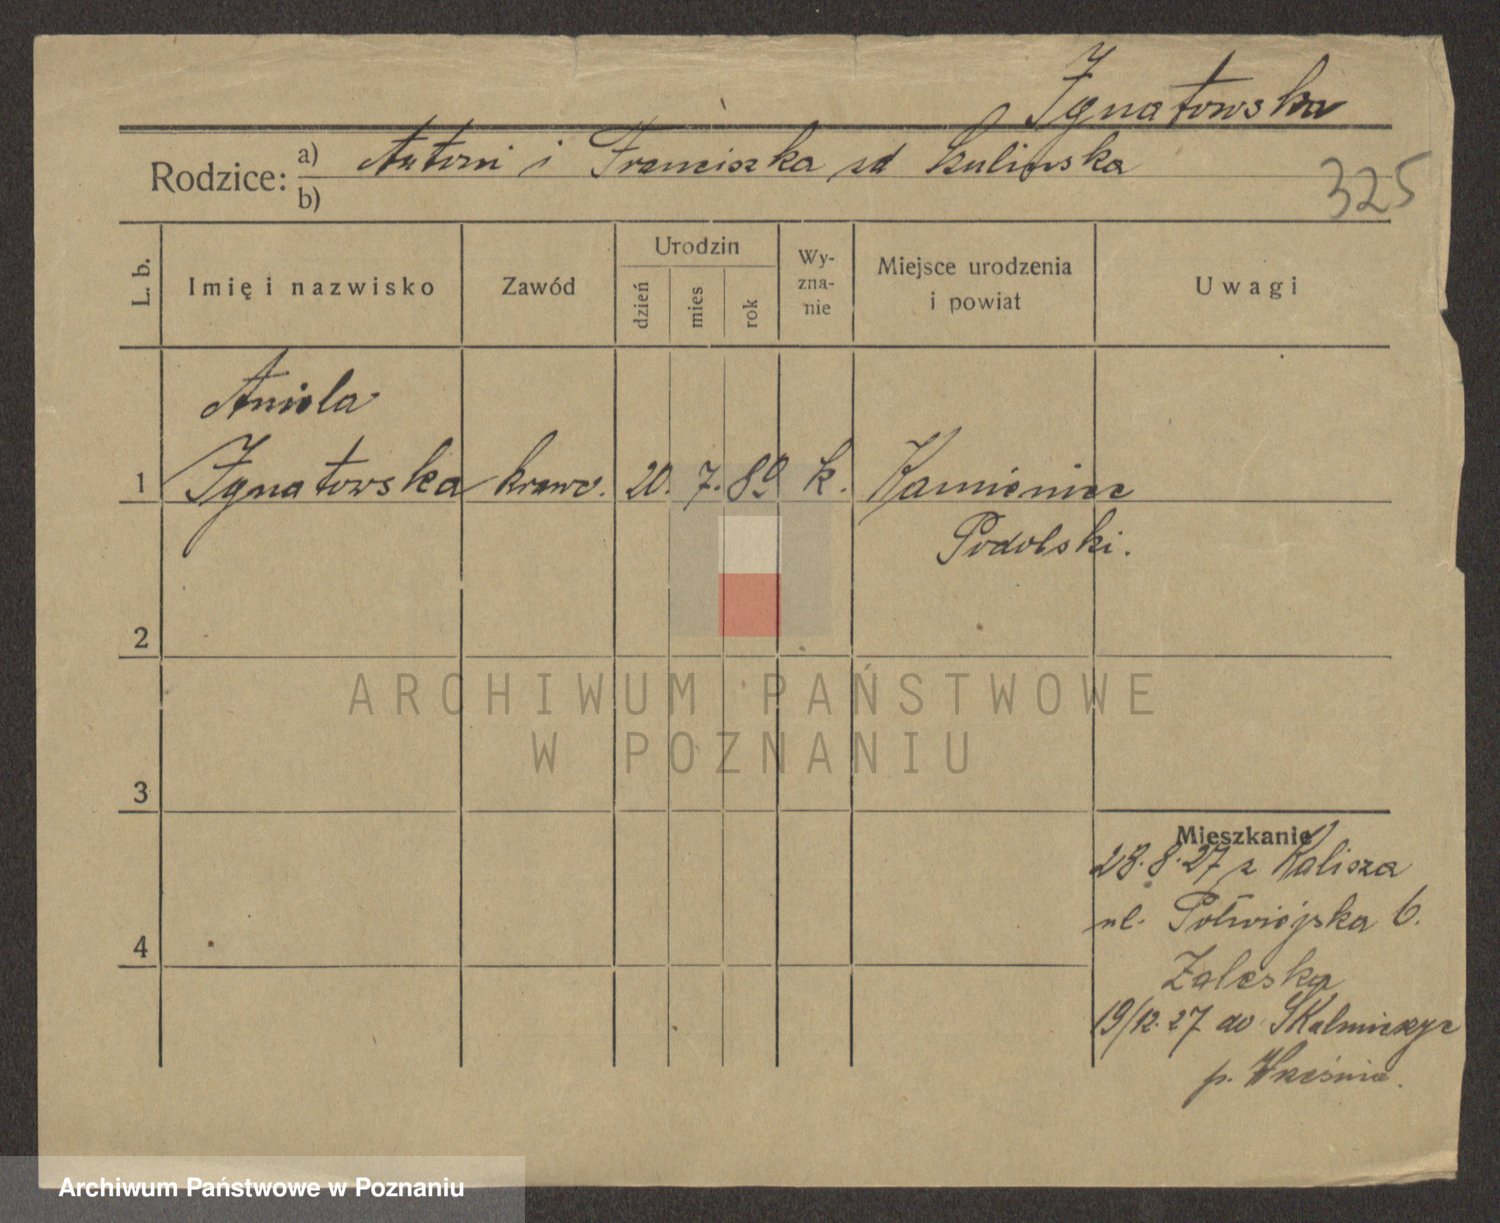 Ignatowska
Rodzice: a) Antoni i Franciszka zd Kulinska
b)
325
L. b.
Imię i nazwisko
Zawód
Urodzin
dzień
mies
rok
Wy-
zna-
nie
Miejsce urodzenia
i powiat
Uwagi
Aniela
1 Ignatowska krawc. 20. 7. 89 k. Kamieniec
Podolski.
2
ARCHIWUM PAŃSTWOWE
W POZNANIU
3
Mieszkanie
28.8.27 z Kalisza
ul. Półwiejska 6.
4
Zaleska
19/12.27 do Skalmierzyc
p. Września.
Archiwum Państwowe w Poznaniu